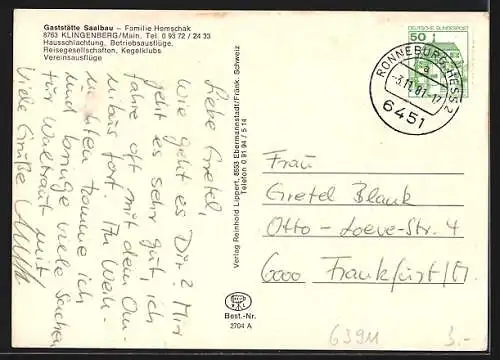 Gaststätte Saalbau – Familie Hornschak
8763 KLINGENBERG/Main, Tel. 0 93 72 / 24 33
Hausschlachtung, Betriebsausflüge,
Reisegesellschaften, Kegelklubs
Vereinsausflüge
Liebe Gretel,
Wie geht es Dir? Mir
geht es sehr gut, ich
fahre oft mit dem Om-
nibus fort. An Weih-
nachten komme ich
und bringe viele Sachen
für Waltraut mit.
Viele Grüße
Verlag Reinhold Lippert, 8553 Ebermannstadt/Fränk. Schweiz
Telefon 0 91 94 / 5 14
Best.-Nr.
2704 A
DEUTSCHE BUNDESPOST
50
RONNEBURG, HESS 2
a
-3.11.81-17
6451
Frau
Gretel Blank
Otto-Loeve-Str. 4
6000 Frankfurt/M.
63911
3.-